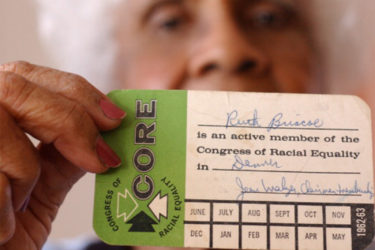 CORE
CONGRESS OF RACIAL EQUALITY
Ruth Briscoe
is an active member of the
Congress of Racial Equality
in Denver
JUNE JULY AUG SEPT OCT NOV
DEC JAN FEB MAR APR MAY
1962-63